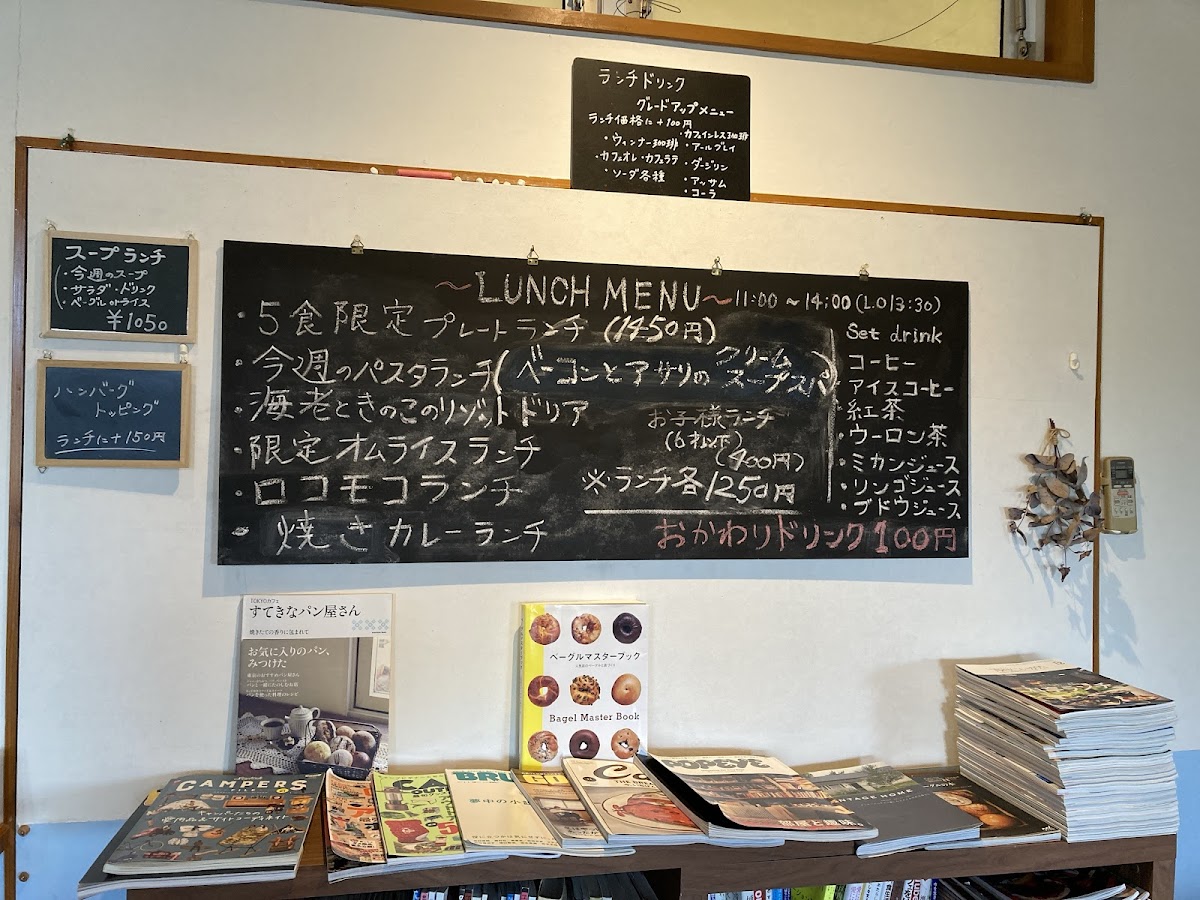 ランチドリンク
グレードアップメニュー
ランチ価格に+100円
・カフェインレス珈琲
・ウィンナー珈琲
・アールグレイ
・カフェオレ・カフェラテ
・ダージリン
・ソーダ各種
・アッサム
・コーラ
スープランチ
・今週のスープ
・サラダ・ドリンク
・ベーグルorライス
¥1050
ハンバーグ
トッピング
ランチに+150円
〜LUNCH MENU〜 11:00 〜14:00 (L.O13:30)
・5食限定プレートランチ (1450円)
・今週のパスタランチ(ベーコンとアサリのクリームスープスパ)
・海老ときのこのリゾットドリア
・限定オムライスランチ
・ロコモコランチ
・焼きカレーランチ
お子様ランチ
(6才以下)
(400円)
※ランチ各1250円
Set drink
・コーヒー
・アイスコーヒー
・紅茶
・ウーロン茶
・ミカンジュース
・リンゴジュース
・ブドウジュース
おかわりドリンク100円
TOKYOカフェ
すてきなパン屋さん
焼きたての香りに包まれて
お気に入りのパン、
みつけた
ベーグルマスターブック
Bagel Master Book
CAMPERS
夢中の小
POPEYE